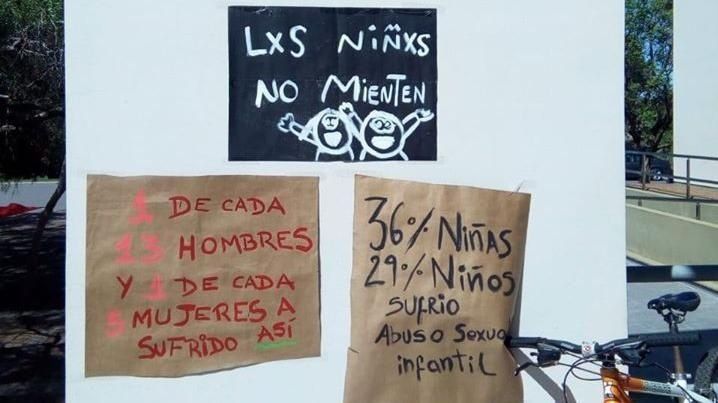 LXS NIÑXS
NO MIENTEN
1 DE CADA
13 HOMBRES
Y 1 DE CADA
5 MUJERES A
SUFRIDO ASÍ
36% NIÑAS
29% NIÑOS
SUFRIO
Abuso Sexua
infantil